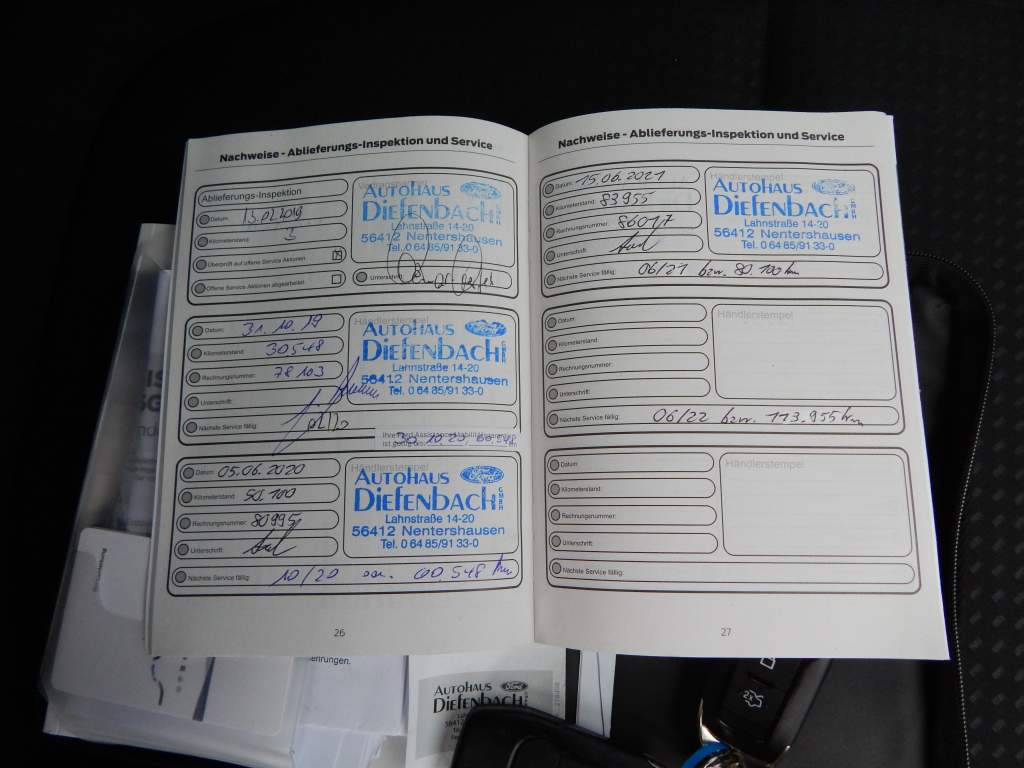 Nachweise - Ablieferungs-Inspektion und Service
Ablieferungs-Inspektion
Datum:
Kilometerstand: 3
Überprüft auf offene Service Aktionen
Offene Service-Aktionen abgearbeitet
AUTOHAUS
Ford
DIEFENBACH GMBH
Lahnstraße 14-20
56412 Nentershausen
Tel. 0 64 85/91 33-0
Datum: 31.10.19
Kilometerstand: 30548
Rechnungsnummer: 78103
Unterschrift:
Nächste Service fällig:
Händlerstempel
AUTOHAUS
Ford
DIEFENBACH
Lahnstraße 14-20
56412 Nentershausen
Tel. 0 64 85/91 33-0
30.10.20, 60.548
Datum: 05.06.2020
Kilometerstand: 50.100
Rechnungsnummer: 80995
Unterschrift:
Nächste Service fällig: 10/20 60.548 km
Händlerstempel
AUTOHAUS
Ford
DIEFENBACH GMBH
Lahnstraße 14-20
56412 Nentershausen
Tel. 0 64 85/91 33-0
26
Nachweise - Ablieferungs-Inspektion und Service
Datum: 15.06.2021
Kilometerstand: 83955
Rechnungsnummer: 86017
Unterschrift:
Nächste Service fällig: 06/21 bzw. 80.100 km
Händlerstempel
AUTOHAUS
DIEFENBACH GMBH
Lahnstraße 14-20
56412 Nentershausen
Tel. 0 64 85/91 33-0
Datum:
Kilometerstand:
Rechnungsnummer:
Unterschrift:
Nächste Service fällig: 06/22 bzw. 113.955 km
Händlerstempel
Datum:
Kilometerstand:
Rechnungsnummer:
Unterschrift:
Nächste Service fällig:
Händlerstempel
27
AUTOHAUS
Ford
DIEFENBACH